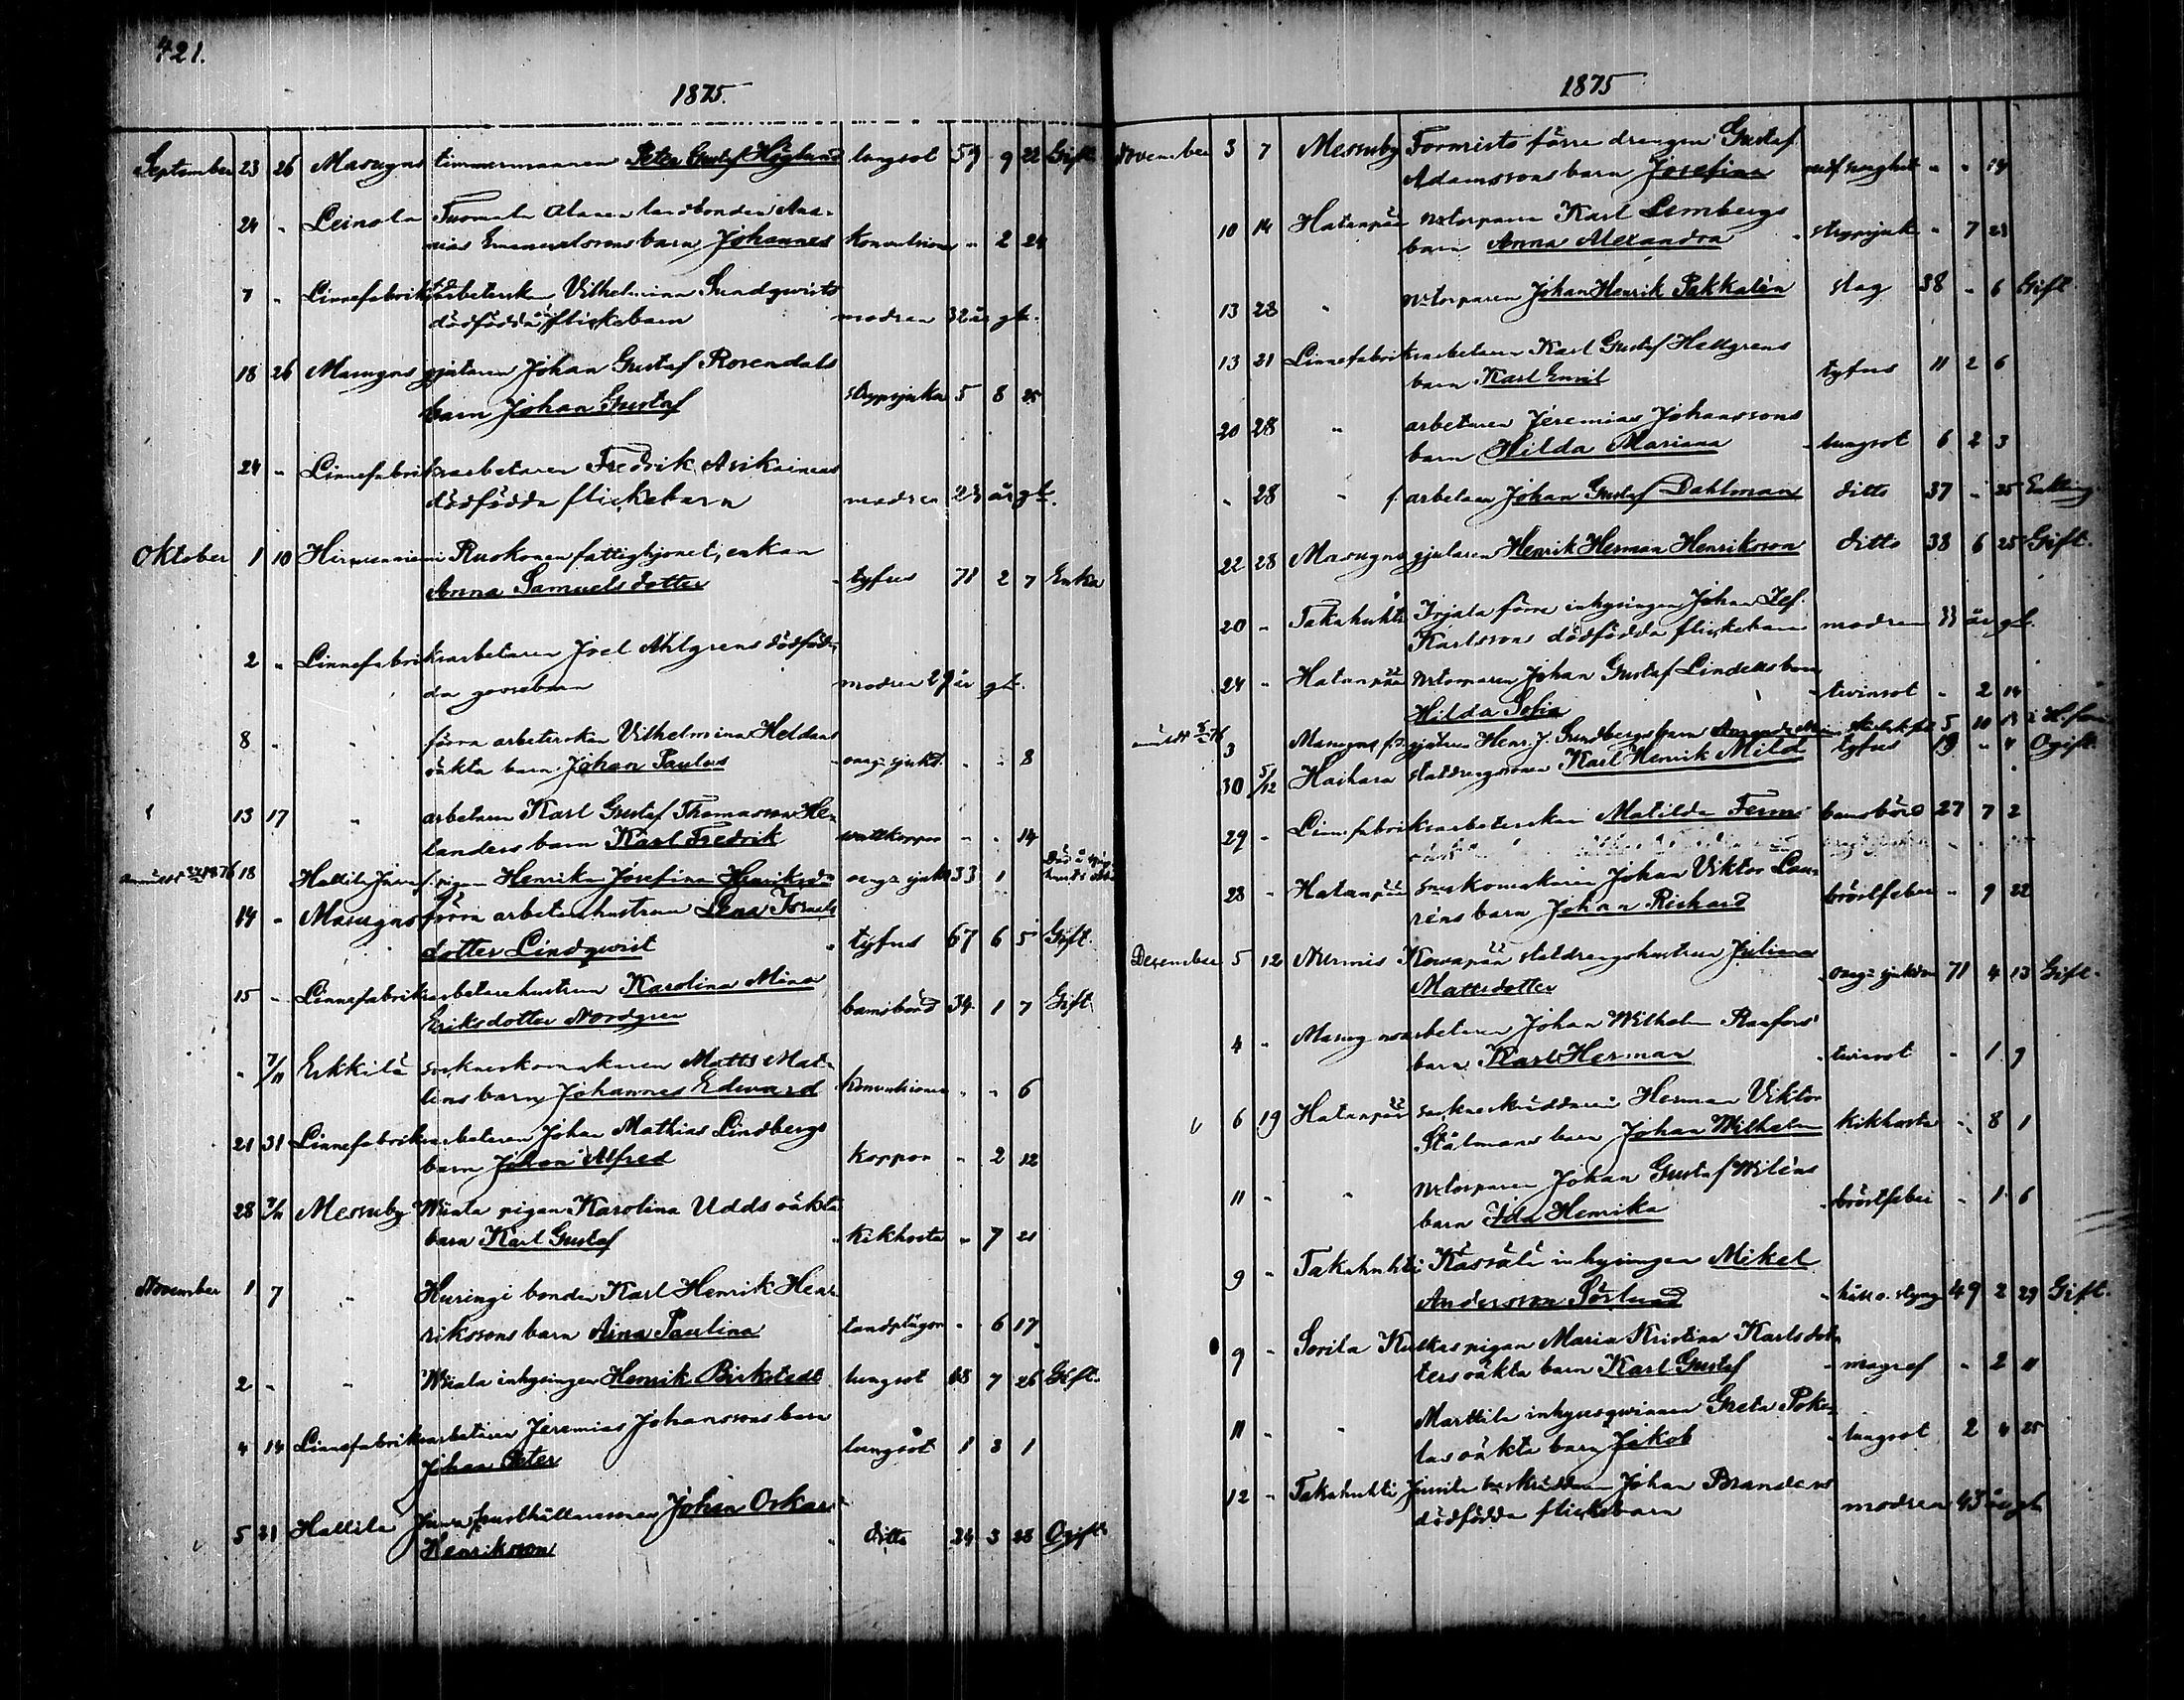 421.
1875.
September 23 26 Masugns timmermannen Peter Gustaf Höglund lungsot 59 9 22 Gift
24 " Leinola Tuomala landbonden Ana-
nias Emanuelssons barn Johannes Konvulsioner " 2 24
7 " Linnefabriks arbeterskan Vilhelmina Sundqvists
dödfödda flickebarn modren 32 år gl.
18 26 Masugns gjutaren Johan Gustaf Rosendals
barn Johan Gustaf strypsjuka 5 8 25
24 " Linnefabriksarbetaren Fredrik Asikainens
dödfödda flickebarn modren 23 år gl.
Oktober 1 10 Ruokonen fattighjonet, enkan
Anna Samuelsdotter tyfus 71 2 7 Enka
2 " Linnefabriksarbetaren Joel Ahlgrens dödföd-
da gossebarn modren 29 år gl.
8 " " förra arbeterskan Vilhelmina Heldans
oäkta barn Johan Paulus " " 8
13 17 " arbetaren Karl Gustaf Thomasson He-
landers barn Karl Fredrik wattkoppor " " 14
18 Hallila f. pigan Henrika Josefina Henriksdr 33 1
14 " Masugns förra arbetarehustrun Lena
dotter Lindqvist tyfus 67 6 5 Gift.
15 " Linnefabriksarbetarehustrun Karolina Mina
Eriksdotter Nordgren barnsbörd 34 1 7 Gift
" 7/11 Erkkilä sockneskomakaren Matts Mat-
lins barn Johannes Edward Konvulsioner " " 6
21 31 Linnefabriksarbetaren Johan Mathias Lindbergs
barn Johan Alfred Koppor " 2 12
28 7/11 Messuby Wiiala pigan Karolina Udds oäkta
barn Karl Gustaf Kikhosta " 7 21
November 1 7 " Huringi bonden Karl Henrik Hen-
rikssons barn Aina Paulina tandplågor " 6 17
2 " " Wiiala inhysingen Henrik Birkstedt lungsot 68 7 26 Gift.
4 14 Linnefabriksarbetaren Jeremias Johanssons barn
Johan Peter lungsot 1 3 1
5 21 Hallila Johan Oskar
Henriksson ditto 24 3 28 Ogift
1875
November 3 7 Messuby Formisto förre drengen Gustaf
Adamssons barn Josefina " " 14
10 14 Hatanpää Karl Lembergs
barn Anna Alexandra strypsjuk " 7 23
13 28 " Johan Henrik Pakkalén slag 38 " 6 Gift
13 21 Linnefabriksarbetaren Karl Gustaf Hallgrens
barn Karl Emil tyfus 11 2 6
20 28 " arbetaren Jeremias Johanssons
barn Hilda Mariana lungsot 6 2 3
" 28 " f. arbetaren Johan Gustaf Dahlman ditto 37 " 25 Enkling
22 28 Masugns gjutaren Henrik Herman Henriksson ditto 38 6 25 Gift.
20 " Takahuhti Irjala förre inhysingen Johan
Karlssons dödfödda flickebarn modren 33 år gl.
24 " Hatanpää Johan Gustaf Lindells barn
Hilda Sofia tvinsot " 2 14
3 Masugns gjutaren Henr. J. Sundbergs barn 5 10
30 5/12 Haihara statdrengssonen Karl Henrik Mild tyfus 19 " 4 Ogift
29 " Linnefabriksarbeterskan Matilda Ferms barnsbörd 27 7 2
28 " Hatanpää skomakaren Johan Viktor Lau-
réns barn Johan Richard bröstfeber " 9 22
December 5 12 Nurmis Kowapää statdrengshustrun Juliana
Mattsdotter 71 4 13 Gift.
4 " Masugnsarbetaren Johan Wilhelm Ranfors'
barn Karl Herman tvinsot " 1 9
6 19 Hatanpää sockneskräddaren Herman Viktor
Stålmans barn Johan Wilhelm Kikhosta " 8 1
11 " " Johan Gustaf Wiléns
barn Ida Henrika bröstfeber " 1 6
9 " Takahuhti Kässälä inhysingen Mikel
Andersson Sörlund håll o. styng 49 2 29 Gift.
9 " Sorila Kulkas pigan Maria Kristina Karlsdot-
ters oäkta barn Karl Gustaf magref " 2 11
11 " " Marttila inhysesqwinnan Greta Poke-
las oäkta barn Jakob lungsot 2 4 25
12 " Takahuhti Johan Branders
dödfödda flickebarn modren 43 år gl.